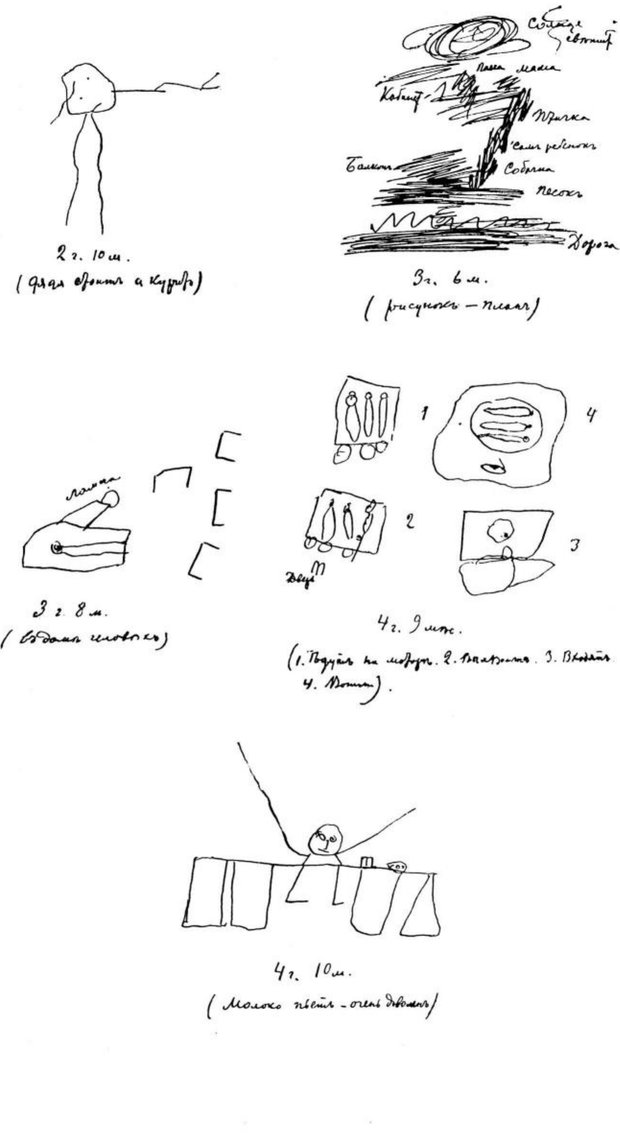 Солнце
светитъ
папа мама
Кабинетъ
птичка
самъ ребенокъ
Балконъ
Собачка
песокъ
Дорога
2 г. 10 м.
(дядя стоитъ и куритъ)
3 г. 6 м.
(рисунокъ — планъ)
лампа
3 г. 8 м.
(въ домѣ человѣкъ)
1
4
2
3
4 г. 9 мѣс.
(1. ѣдутъ на моторѣ. 2. 3. Входятъ
4.
4 г. 10 м.
(Молоко пьетъ — очень доволенъ)